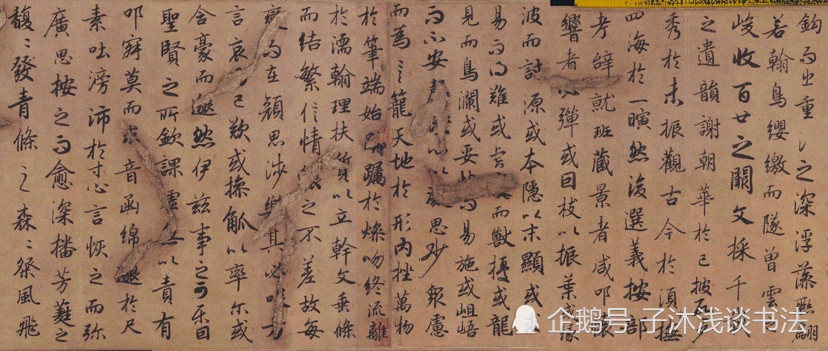 鈎而出重之深浮藻聮翩
若翰鳥纓繳而隧曾雲
峻收百世之闕文採千載
之遺韻謝朝華於已披夕
秀於未振觀古今於湏臾撫
四海於一瞚然後選義按部
考辝就班藏景者咸叩懷
響者必彈或因枝以振葉或㳂
波而討源或本隱以末顯或
易而得難或而獸擾或龍
見而鳥瀾或妥而易施或岨峿
而不安思眇衆慮
而爲言籠天地於形內挫萬物
於筆端始躑躅於燥吻終流離
於濡翰理扶質以立幹文垂條
而結繁信情之不差故每
而在顏思涉樂其必方
言哀已歎或操觚以率尓或
含豪而邈然伊茲事之可樂固
聖賢之所欽課虛以責有
叩寂莫而求音函綿邈於尺
素吐滂沛於寸心言恢之而弥
廣思按之而愈深播芳蕤之
馥〻發青條之森〻粲風飛
企鹅号 子沐浅谈书法